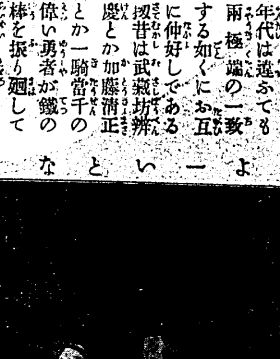 年代は違ふても
兩極端の一致
する如くにお互
に仲好しである
扨昔は武蔵坊辨
慶とか加藤清正
とか一騎當千の
偉い勇者が鐵の
棒を振り廻して
よーいとな